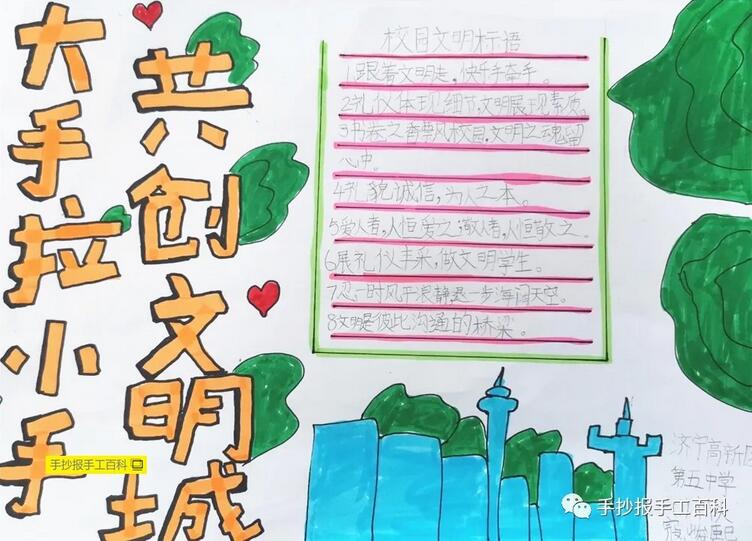 大手拉小手
共创文明城
校园文明标语
1.跟着文明走,快乐手牵手。
2.礼仪体现细节,文明展现素质。
3书卷之香飘风校园,文明之魂留
心中。
4.礼貌诚信,为人之本。
5爱人者,人恒爱之;敬人者,人恒敬之。
6展礼仪丰采,做文明学生。
7忍一时风平浪静,退一步海阔天空。
8文明是彼此沟通的桥梁。
济宁高新区
第五中学
手抄报手工百科
手抄报手工百科